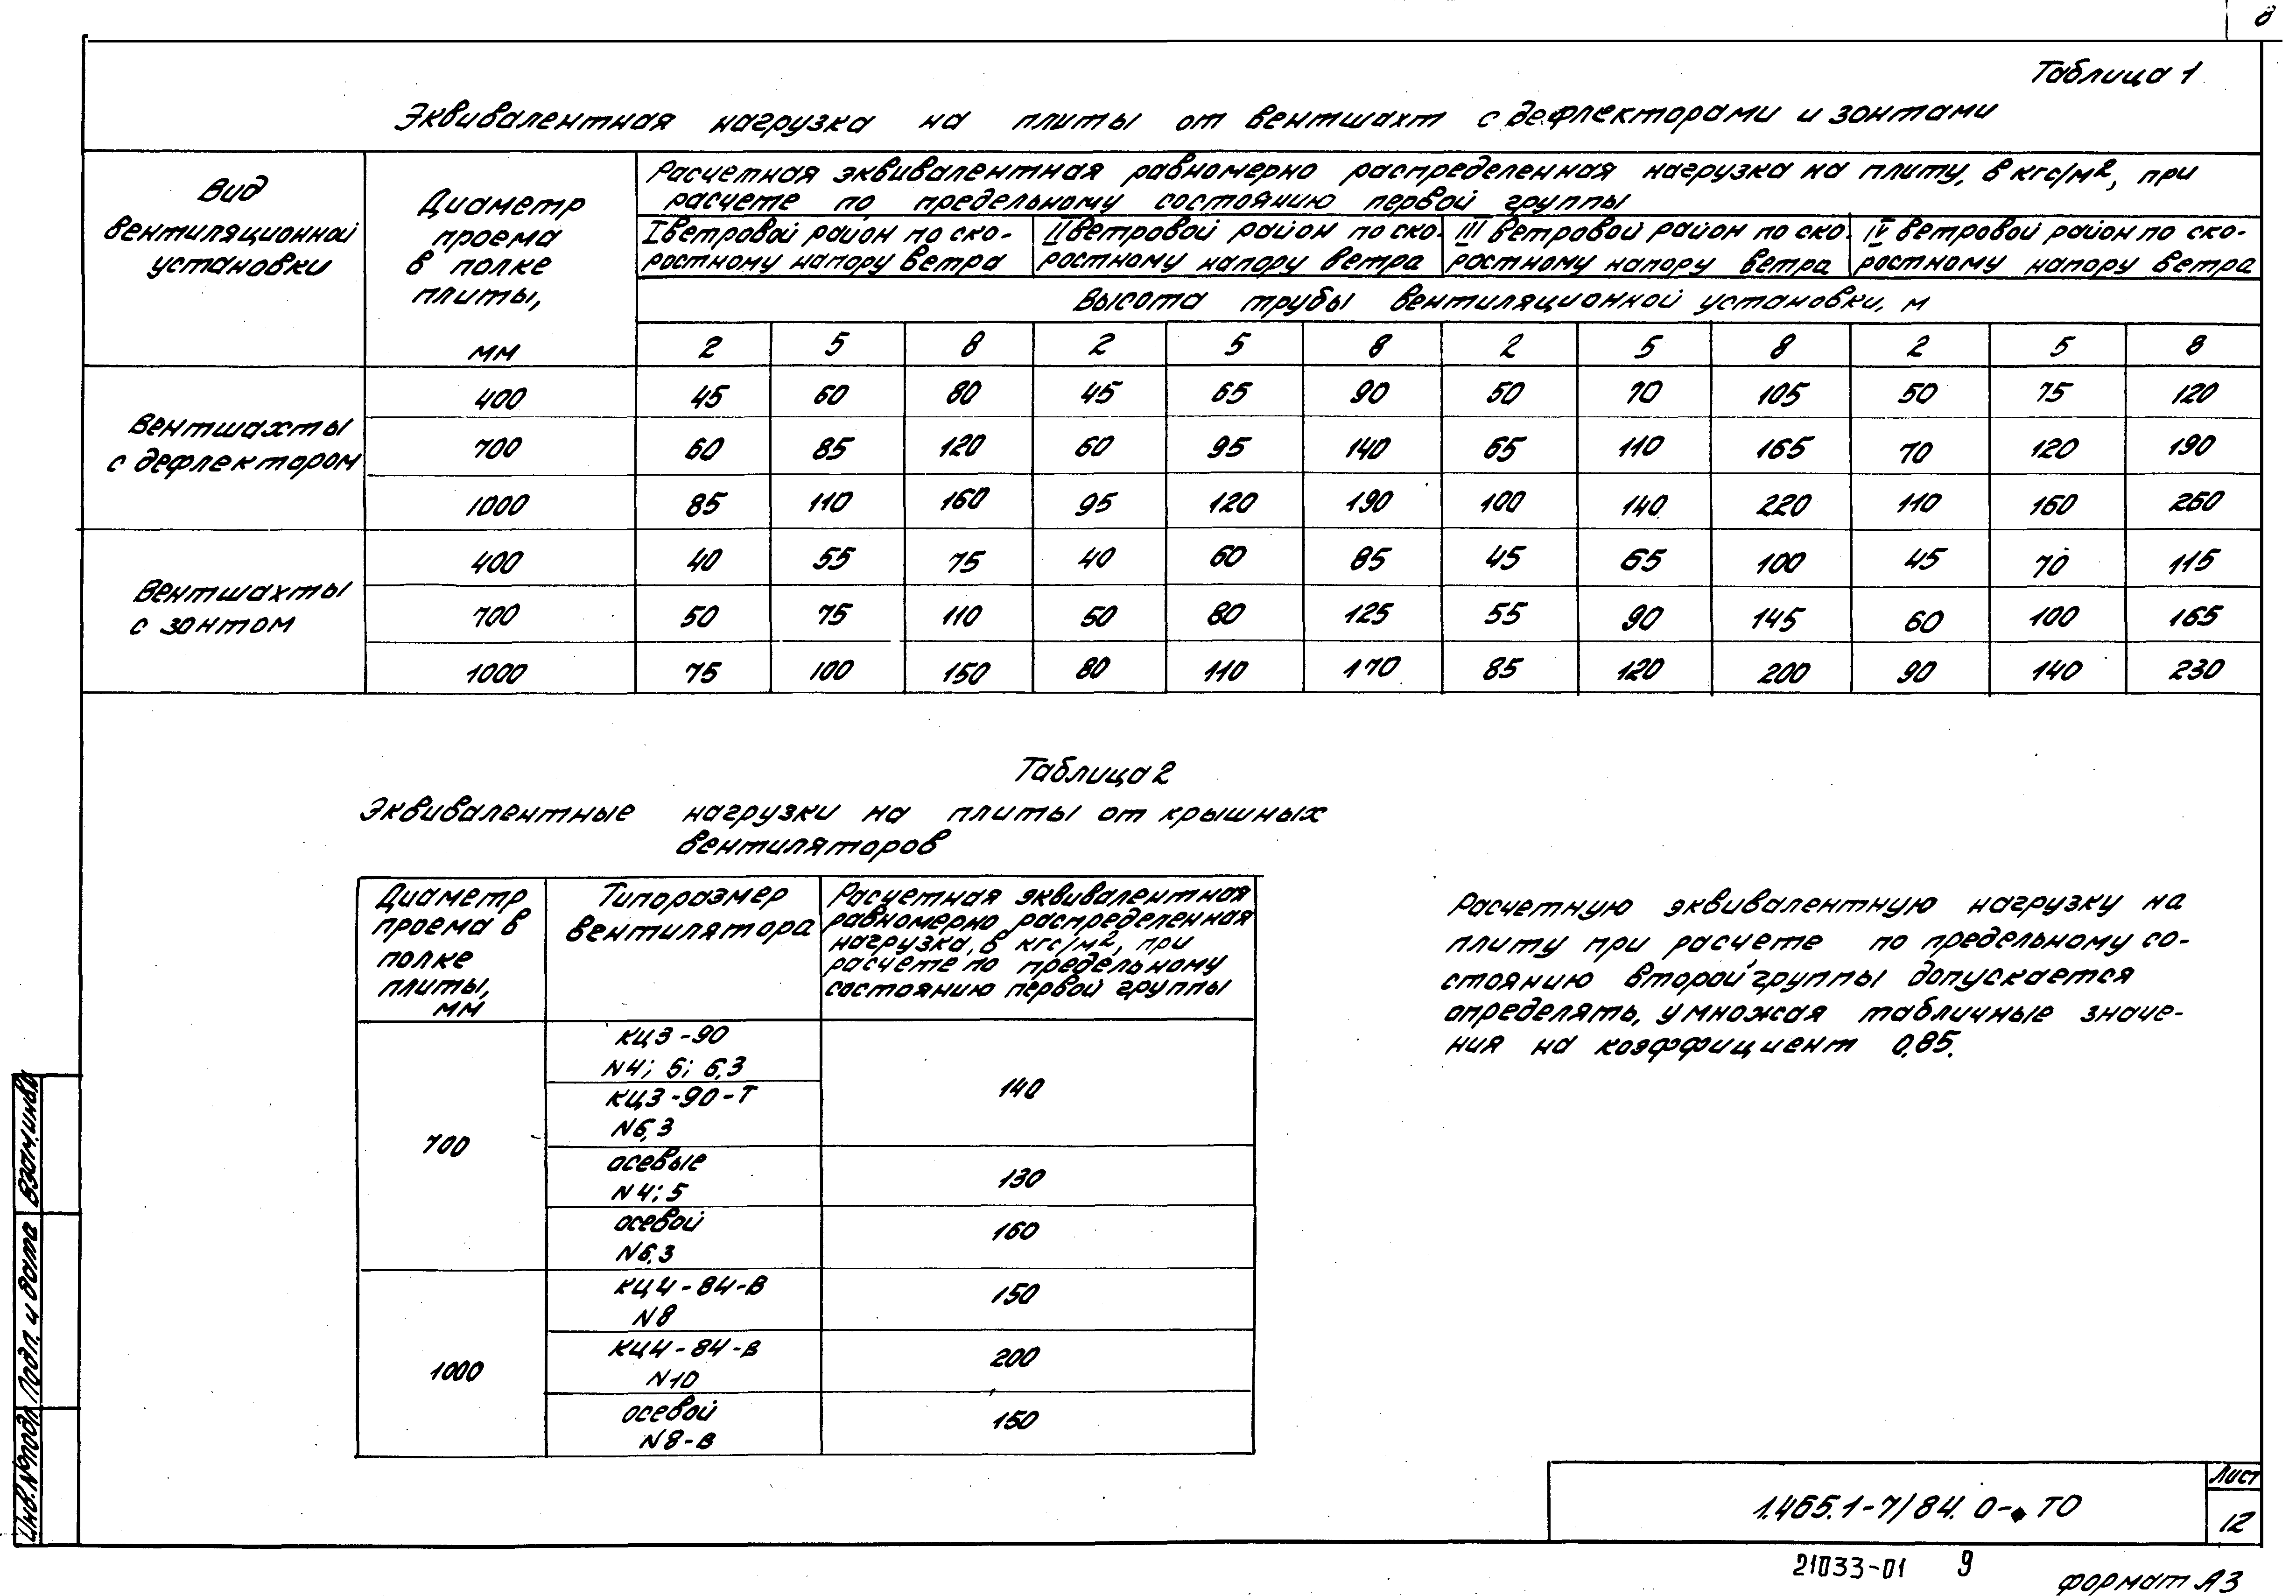 8
Таблица 1
Эквивалентная нагрузка на плиты от вентшахт с дефлекторами и зонтами
Вид
вентиляционной
установки
Диаметр
проема
в полке
плиты,
мм
Расчетная эквивалентная равномерно распределенная нагрузка на плиту, в кгс/м², при
расчете по предельному состоянию первой группы
I ветровой район по ско-
ростному напору ветра
II ветровой район по ско-
ростному напору ветра
III ветровой район по ско-
ростному напору ветра
IV ветровой район по ско-
ростному напору ветра
Высота трубы вентиляционной установки, м
2 5 8 2 5 8 2 5 8 2 5 8
Вентшахты
с дефлектором
400 45 60 80 45 65 90 50 70 105 50 75 120
700 60 85 120 60 95 140 65 110 165 70 120 190
1000 85 110 160 95 120 190 100 140 220 110 160 260
Вентшахты
с зонтом
400 40 55 75 40 60 85 45 65 100 45 70 115
700 50 75 110 50 80 125 55 90 145 60 100 165
1000 75 100 150 80 110 170 85 120 200 90 140 230
Таблица 2
Эквивалентные нагрузки на плиты от крышных
вентиляторов
Диаметр
проема в
полке
плиты,
мм
Типоразмер
вентилятора
Расчетная эквивалентная
равномерно распределенная
нагрузка, в кгс/м², при
расчете по предельному
состоянию первой группы
700
КЦ3-90
N4; 5; 6,3
КЦ3-90-Т
N6,3
140
осевые
N4; 5
130
осевой
N6,3
160
1000
КЦ4-84-В
N8
150
КЦ4-84-В
N10
200
осевой
N8-В
150
Расчетную эквивалентную нагрузку на
плиту при расчете по предельному со-
стоянию второй группы допускается
определять, умножая табличные значе-
ния на коэффициент 0,85.
Инв.№подл. Подл. и дата Взам.инв.№
1.465.1-7/84. 0- ТО
Лист
12
21033-01 9
формат А3